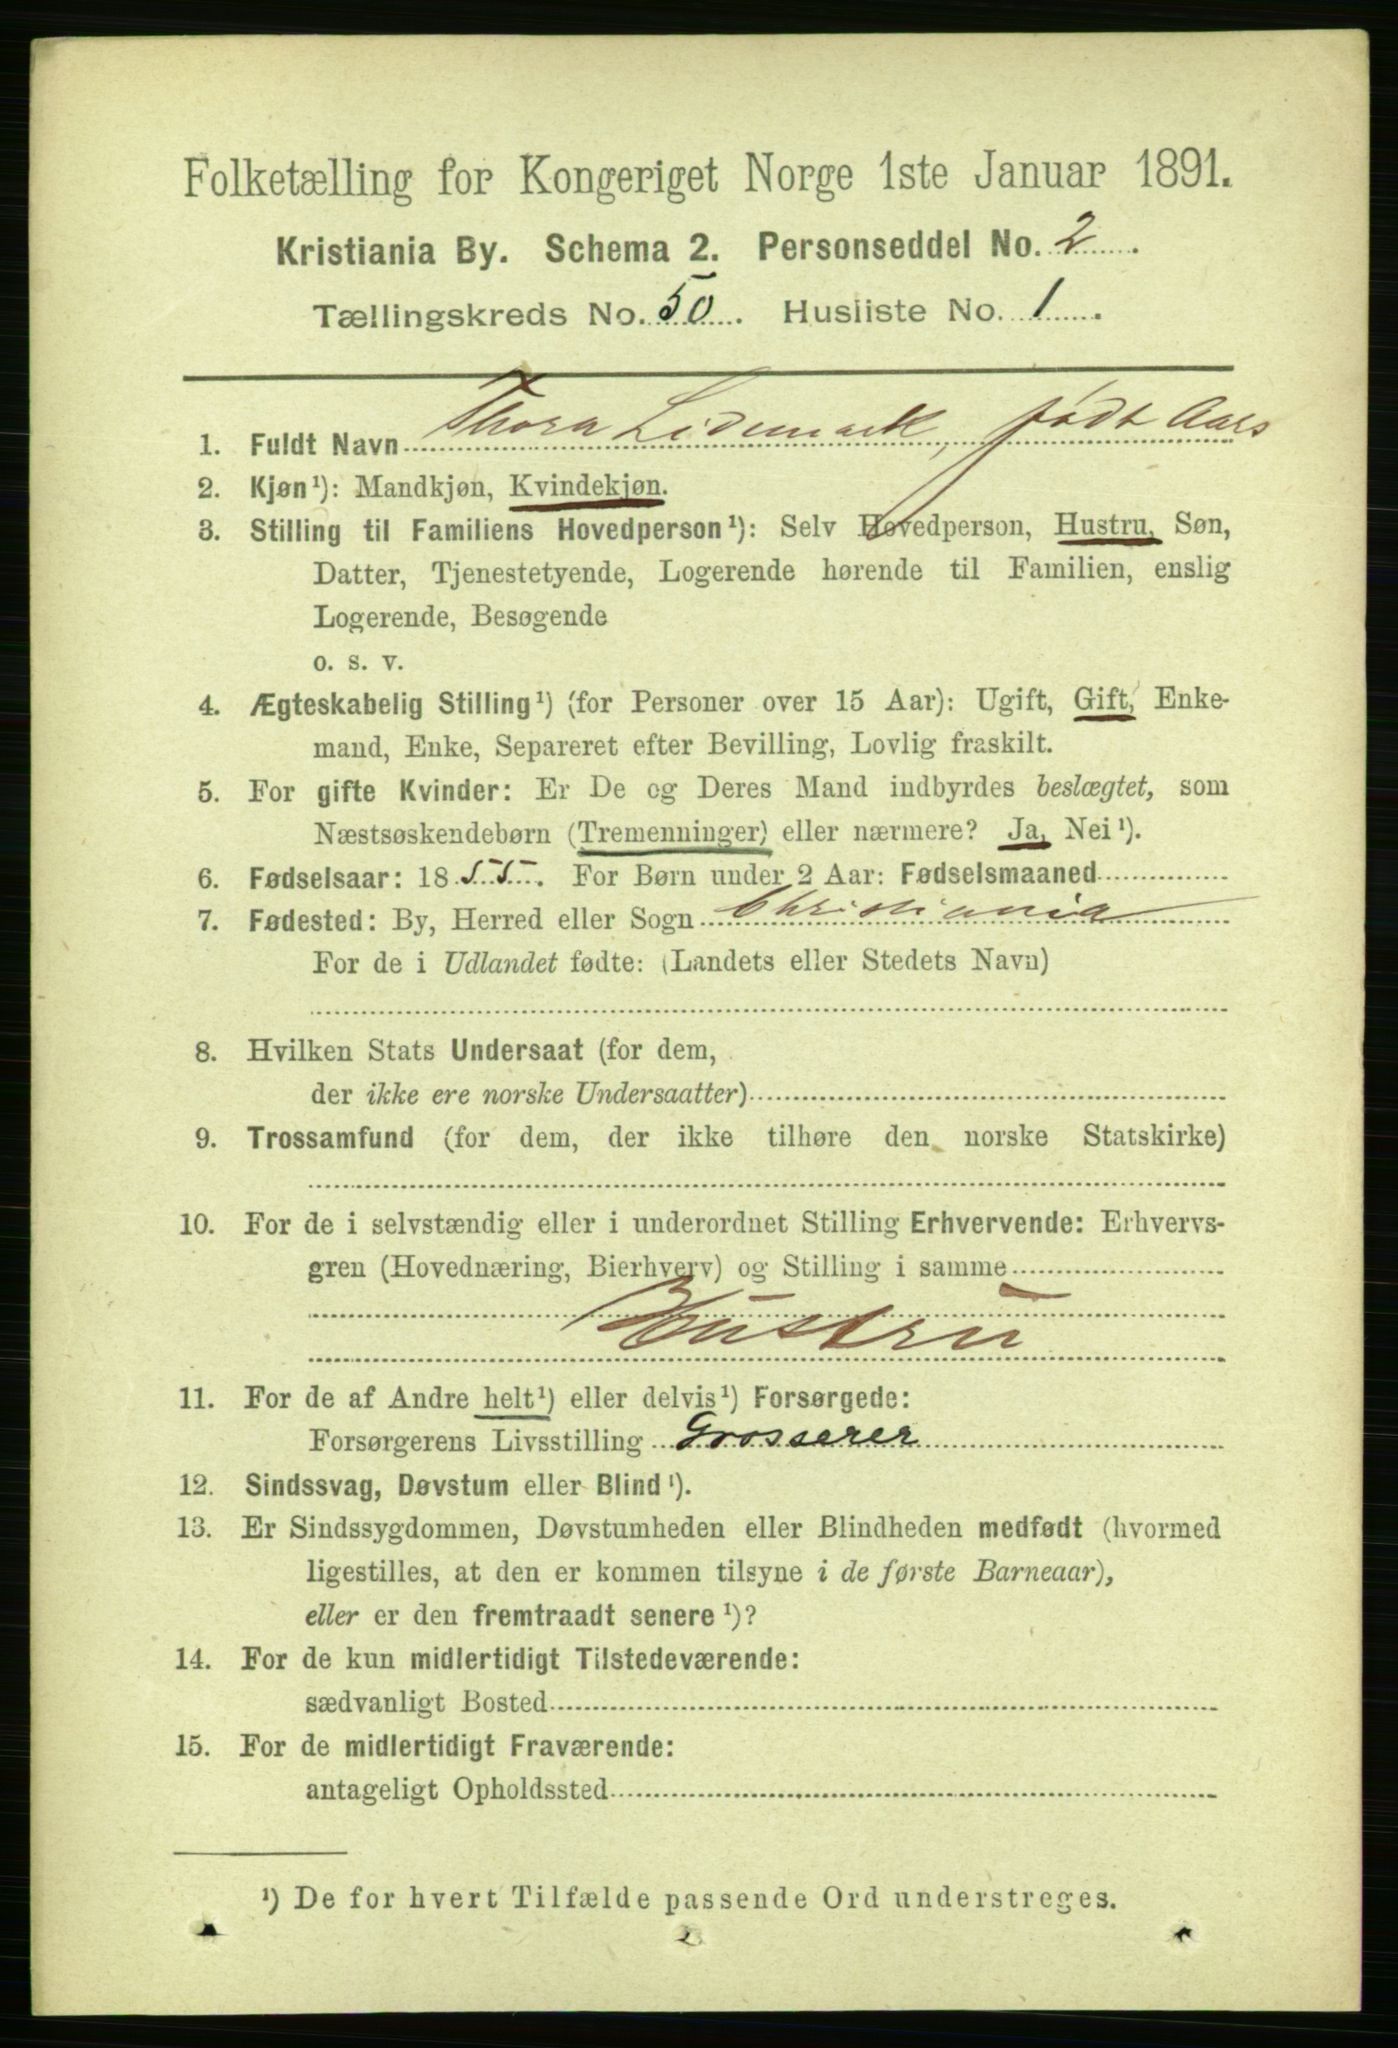 Folketælling for Kongeriget Norge 1ste Januar 1891.
Kristiania By. Schema 2. Personseddel No. 2
Tællingskreds No. 50. Husliste No. 1.
1. Fuldt Navn Thora Lidemark, født Aars
2. Kjøn¹): Mandkjøn, Kvindekjøn.
3. Stilling til Familiens Hovedperson¹): Selv Hovedperson, Hustru, Søn,
Datter, Tjenestetyende, Logerende hørende til Familien, enslig
Logerende, Besøgende
o. s. v.
4. Ægteskabelig Stilling¹) (for Personer over 15 Aar): Ugift, Gift, Enke-
mand, Enke, Separeret efter Bevilling, Lovlig fraskilt.
5. For gifte Kvinder: Er De og Deres Mand indbyrdes beslægtet, som
Næstsøskendebørn (Tremenninger) eller nærmere? Ja, Nei¹).
6. Fødselsaar: 1855. For Børn under 2 Aar: Fødselsmaaned
7. Fødested: By, Herred eller Sogn Christiania
For de i Udlandet fødte: (Landets eller Stedets Navn)
8. Hvilken Stats Undersaat (for dem,
der ikke ere norske Undersaatter)
9. Trossamfund (for dem, der ikke tilhøre den norske Statskirke)
10. For de i selvstændig eller i underordnet Stilling Erhvervende: Erhvervs-
gren (Hovednæring, Bierhverv) og Stilling i samme
Hustru
11. For de af Andre helt¹) eller delvis¹) Forsørgede:
Forsørgerens Livsstilling Grosserer
12. Sindssvag, Døvstum eller Blind¹).
13. Er Sindssygdommen, Døvstumheden eller Blindheden medfødt (hvormed
ligestilles, at den er kommen tilsyne i de første Barneaar),
eller er den fremtraadt senere¹)?
14. For de kun midlertidigt Tilstedeværende:
sædvanligt Bosted
15. For de midlertidigt Fraværende:
antageligt Opholdssted
¹) De for hvert Tilfælde passende Ord understreges.
2